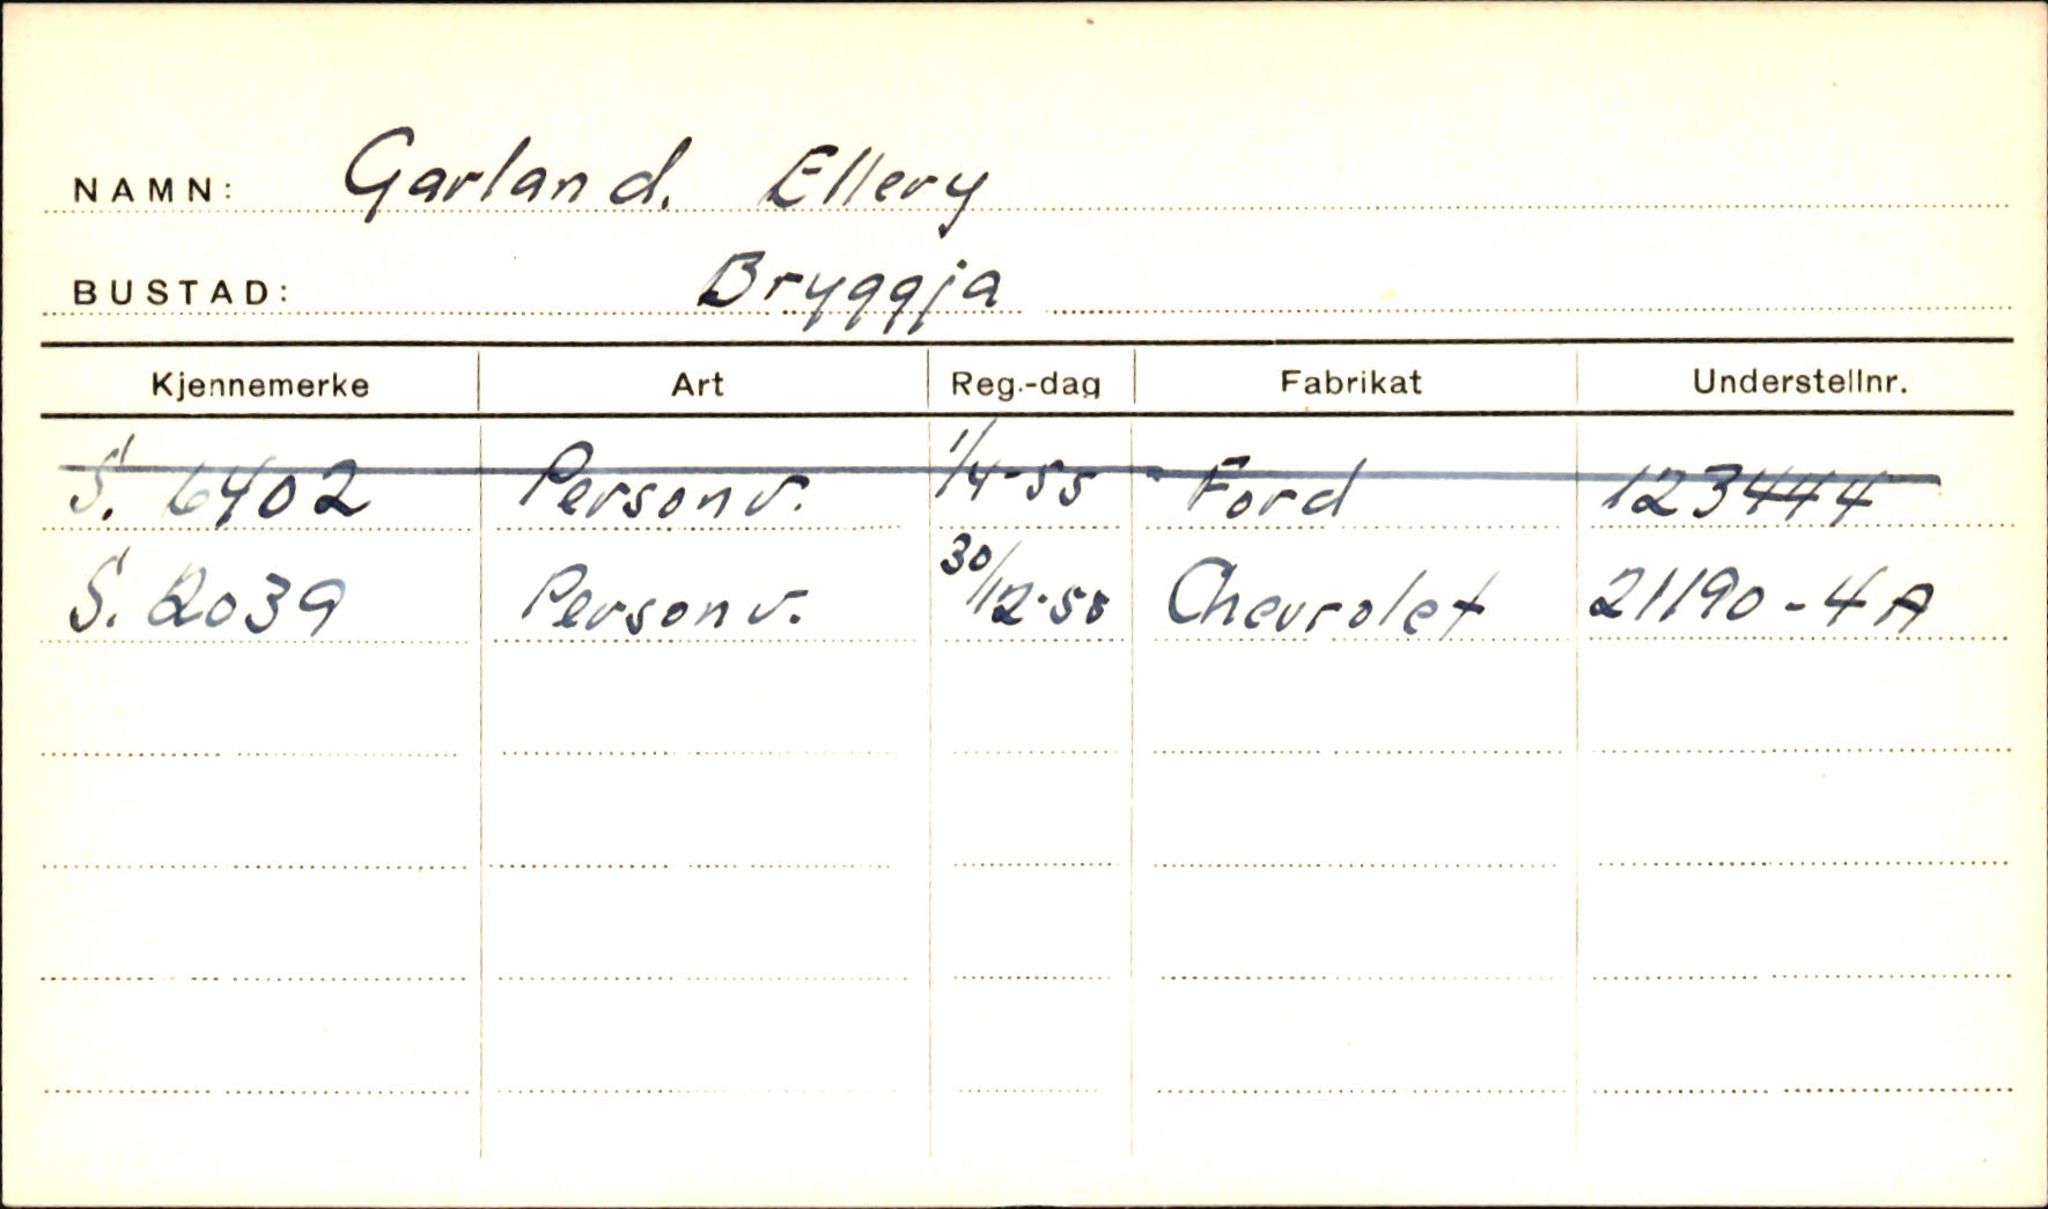 NAMN: Garland. Ellery
BUSTAD: Bryggja
Kjennemerke Art Reg.-dag Fabrikat Understellnr.
S. 6402 Personv. 1/4-55 Ford 123444
S. 2039 Personv. 30/12-58 Chevrolet 21190-4A